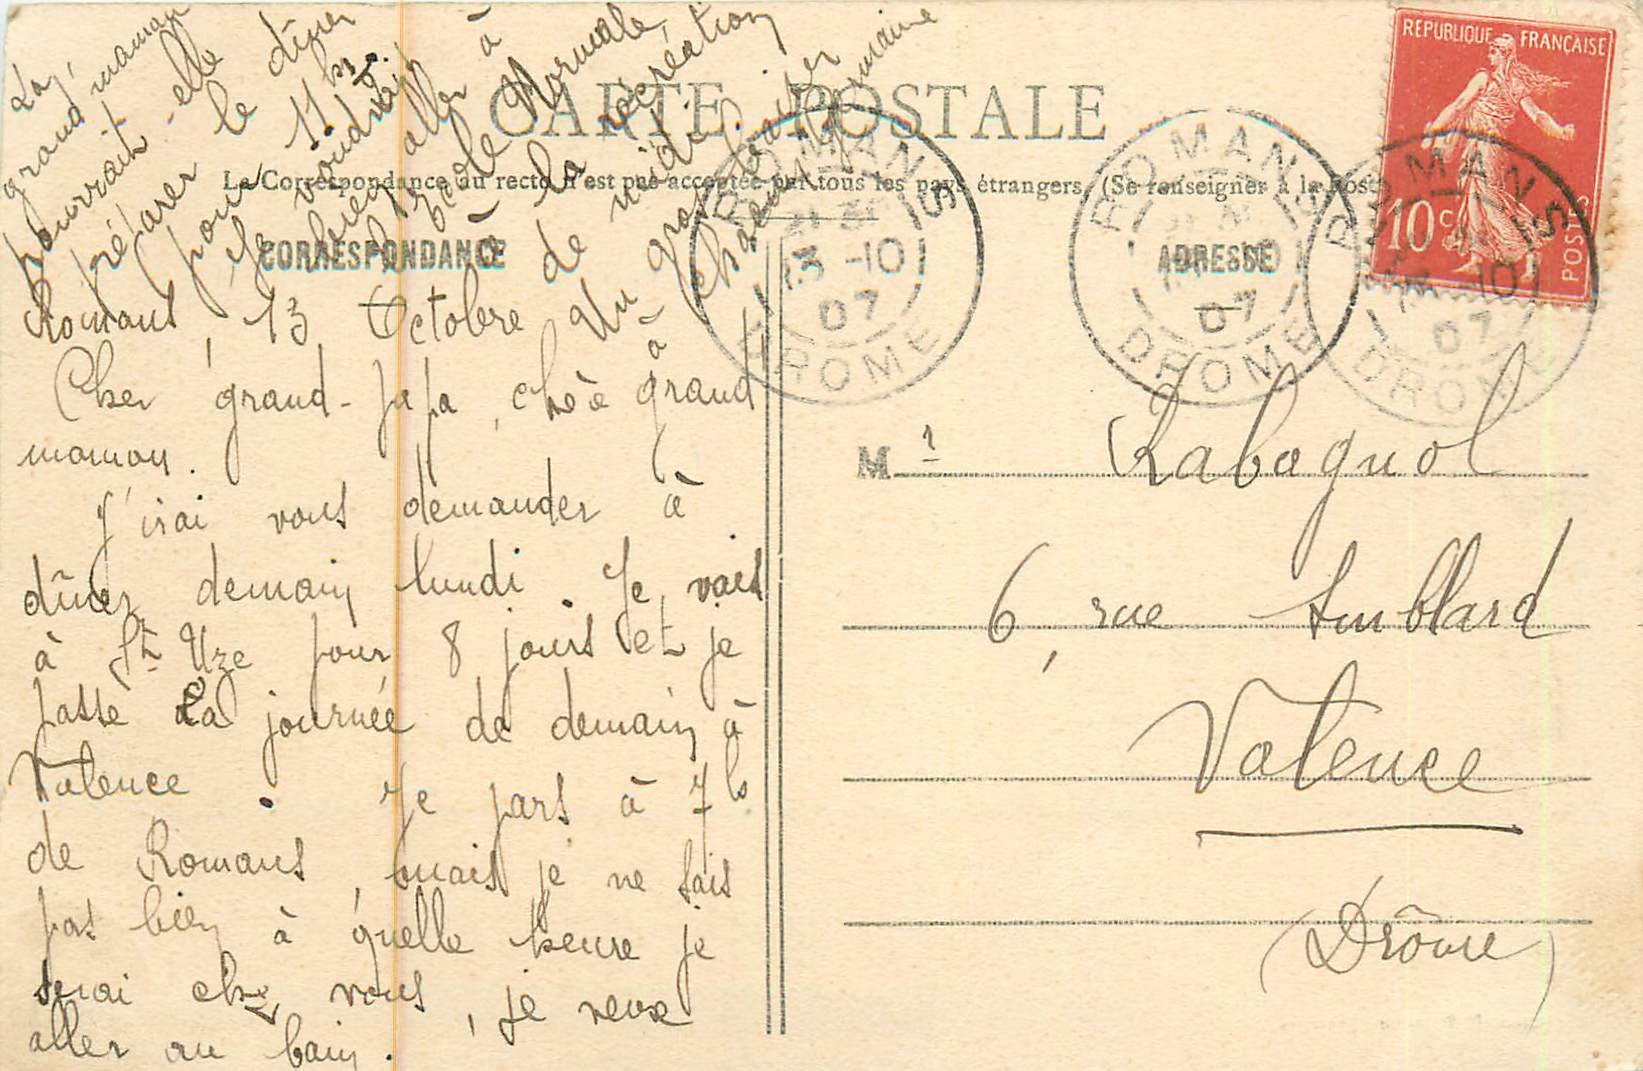 CARTE POSTALE
La Correspondance au recto n'est pas acceptée par tous les pays étrangers (Se renseigner à la Poste
CORRESPONDANCE
ADRESSE
REPUBLIQUE FRANÇAISE
10 c
POSTES
ROMANS
13 -10
07
DROME
ROMANS
-10
07
DROME
ROMANS
-10
07
DROME
Romans, 13 Octobre
Cher grand-papa, chère grand
maman.
J'irai vous demander à
dîner demain lundi. Je vais
à St Uze pour 8 jours et je
passe la journée de demain à
Valence. Je pars à 7h
de Romans, mais je ne sais
pas bien à quelle heure je
serai chez vous, je veux
aller au bain.
grand'maman
pourrait-elle
préparer le dîner
pour 11h
Je voudrais
bien aller à
l'Ecole Normale
à la récréation
de midi.
Un gros baiser
à chacun
Germaine
Mr Rabagnol
6, rue Amblard
Valence
(Drôme)